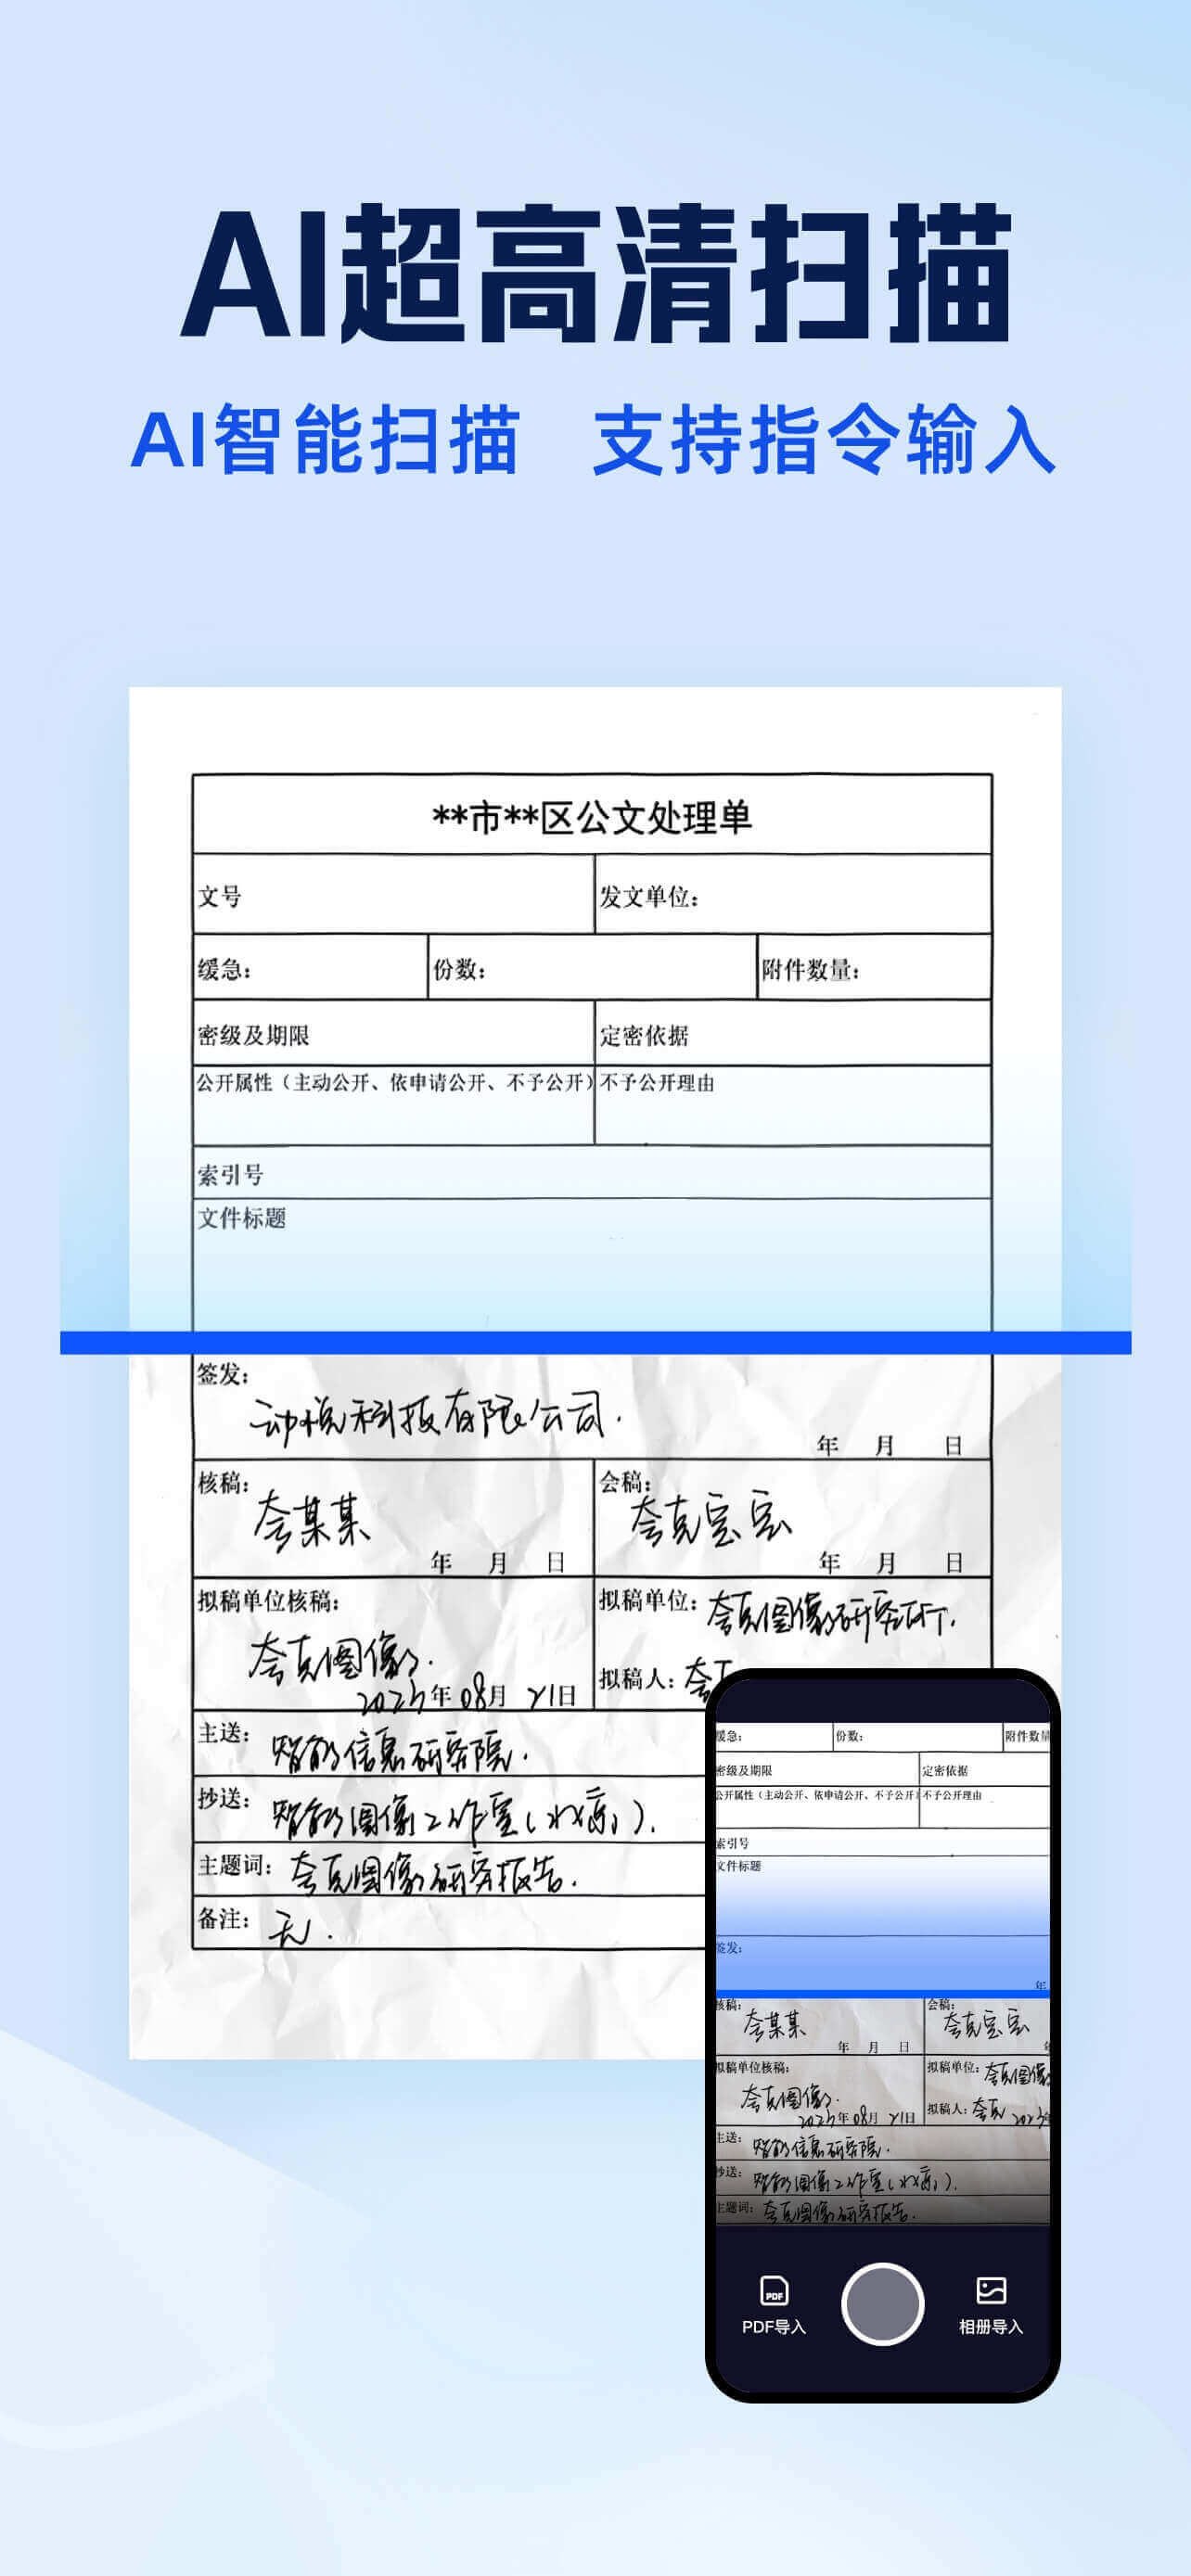 AI超高清扫描
AI智能扫描 支持指令输入
**市**区公文处理单
文号 发文单位：
缓急： 份数： 附件数量：
密级及期限 定密依据
公开属性（主动公开、依申请公开、不予公开） 不予公开理由
索引号
文件标题
签发：
动悦科技有限公司.
年 月 日
核稿： 会稿：
夸某某 夸克宝宝
年 月 日 年 月 日
拟稿单位核稿： 拟稿单位：夸克图像研究所.
夸克图像.
2023年08月21日 拟稿人：夸克
主送：智能信息研究院.
抄送：智能图像工作室（）.
主题词：夸克图像研究报告.
备注：无.
缓急： 份数： 附件数量
密级及期限 定密依据
公开属性（主动公开、依申请公开、不予公开） 不予公开理由
索引号
文件标题
签发：
年
核稿： 会稿：
夸某某 夸克宝宝
年 月 日
拟稿单位核稿： 拟稿单位：夸克图像
夸克图像.
2023年08月21日 拟稿人：夸克 2023年
主送：智能信息研究院.
抄送：智能图像工作室（）.
主题词：夸克图像研究报告.
PDF
PDF导入 相册导入